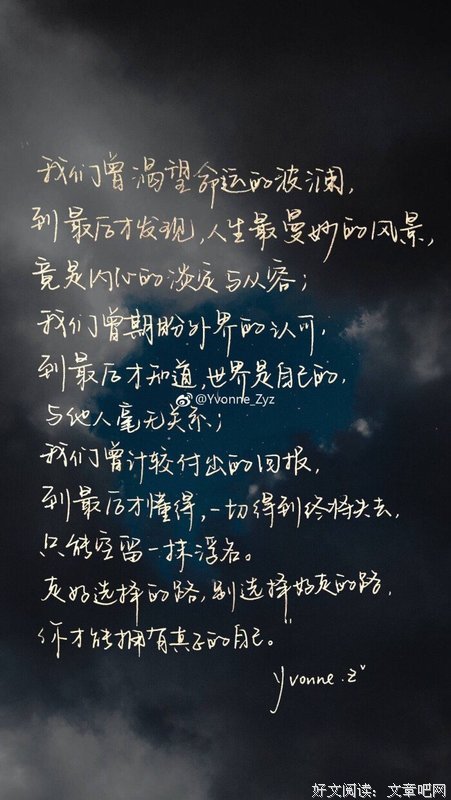 我们曾渴望命运的波澜,
到最后才发现,人生最曼妙的风景,
竟是内心的淡定与从容;
我们曾期盼外界的认可,
到最后才知道,世界是自己的,
@Yvonne_Zyz
与他人毫无关系;
我们曾计较付出的回报,
到最后才懂得,一切得到终将失去,
只能空留一抹浮名。
走好选择的路,别选择好走的路,
你才能拥有真正的自己。"
yvonne.z
好文阅读:文章吧网